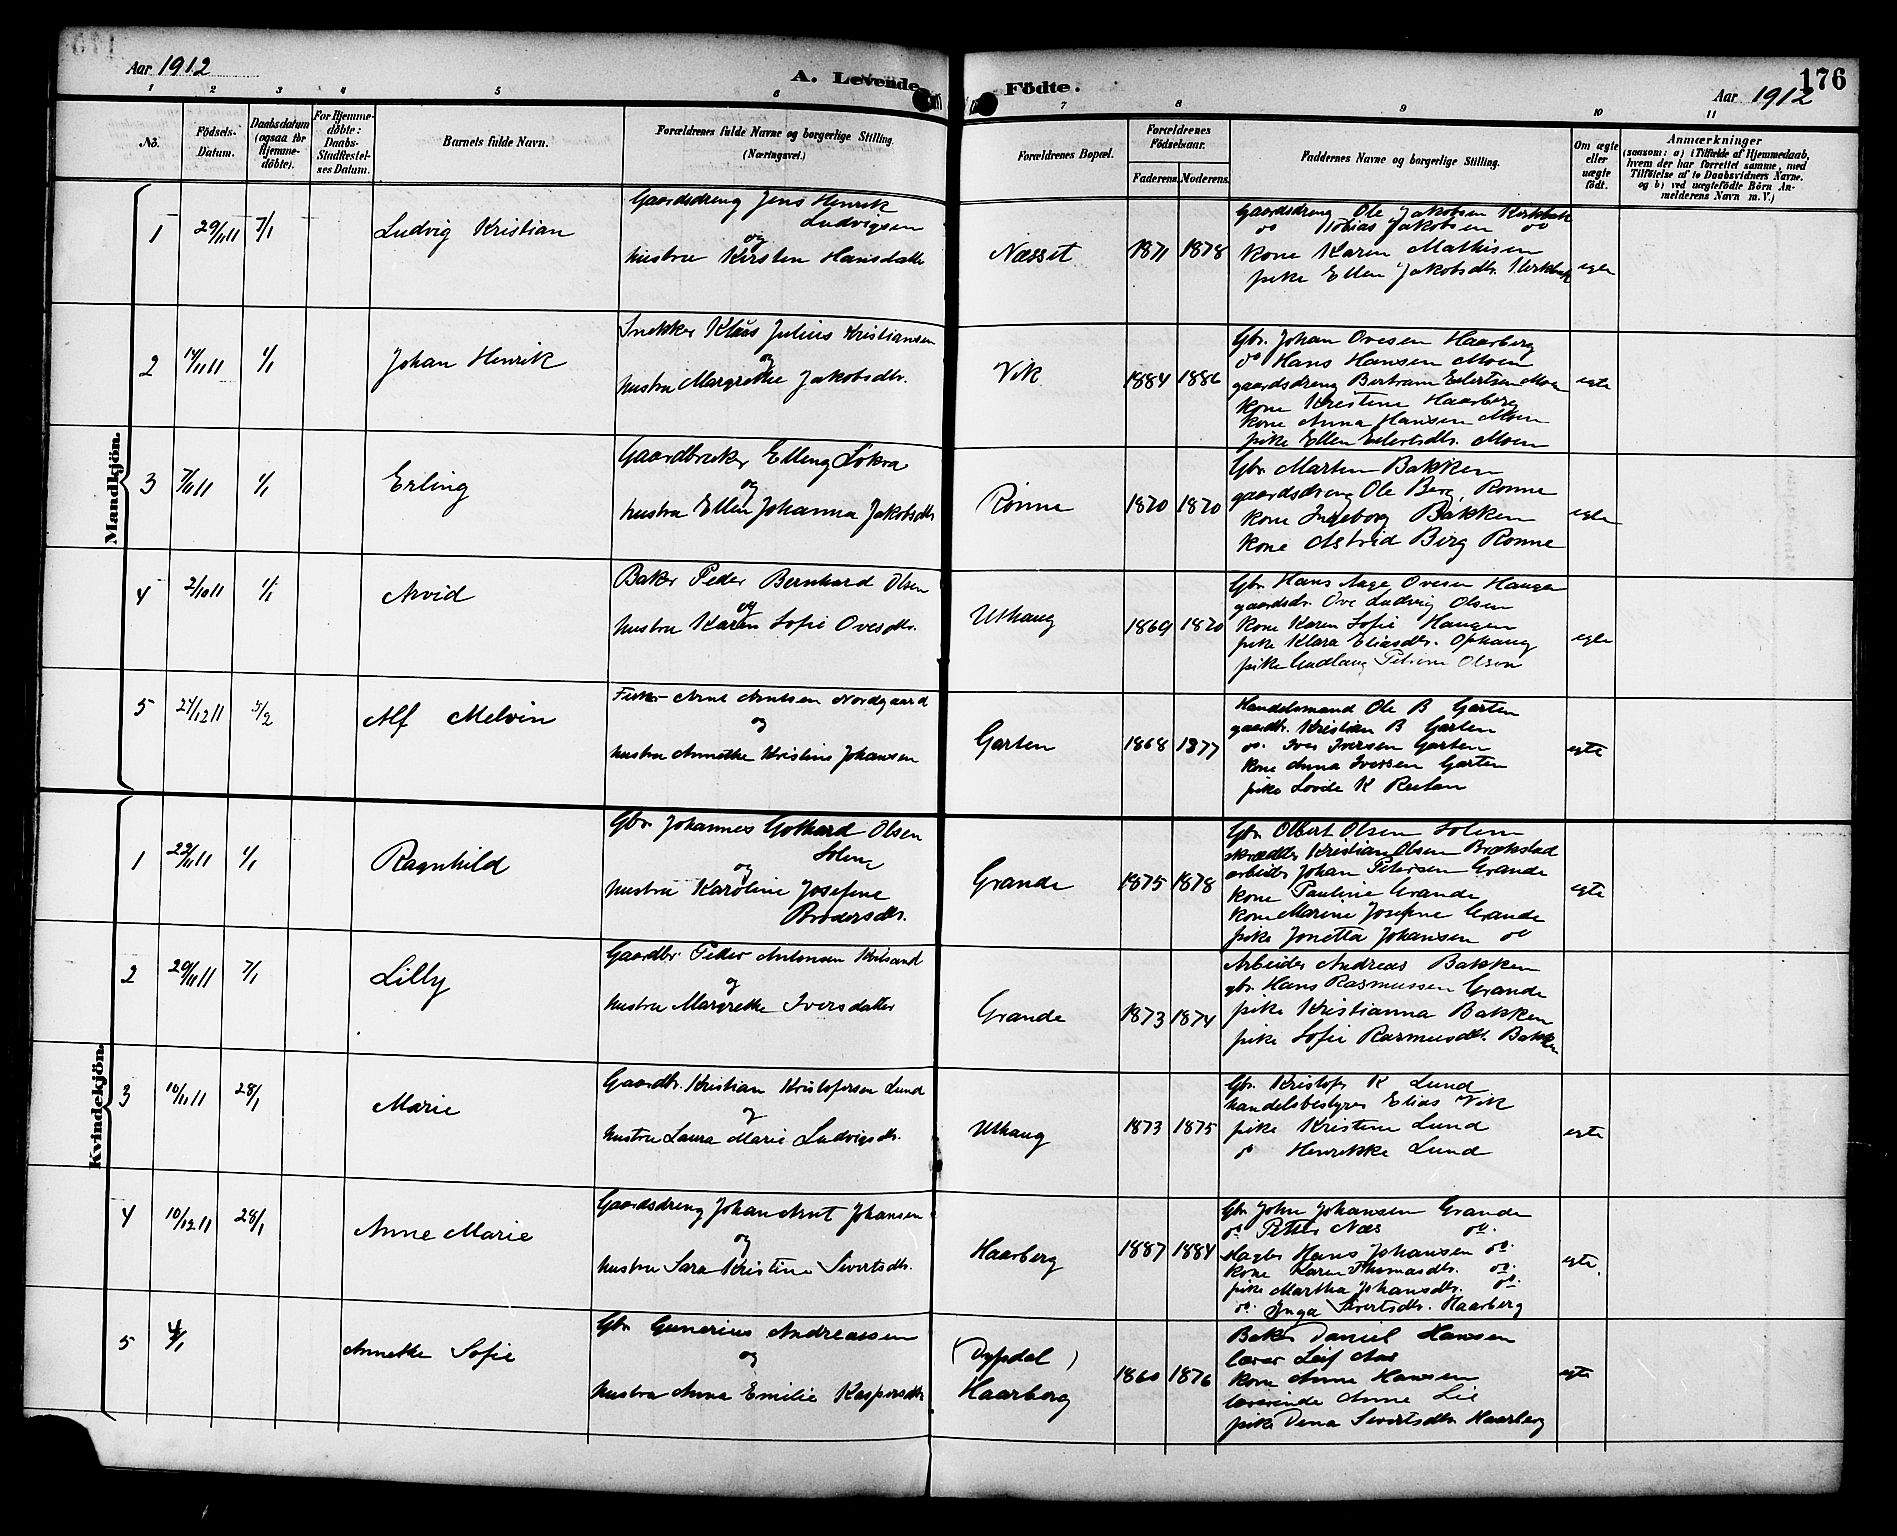 Aar 1912
A. Levende Födte.
Aar 1912
176
1 2 3 4 5 6 7 8 9 10 11
No.
Födsels-Datum.
Daabsdatum (ogsaa for Hjemmedöbte).
For Hjemmedöbte: Daabs-Stadfestelses Datum.
Barnets fulde Navn.
Forældrenes fulde Navne og borgerlige Stilling. (Næringsvei.)
Forældrenes Bopæl.
Forældrenes Födselsaar.
Faderens. Moderens.
Faddernes Navne og borgerlige Stilling.
Om ægte eller uægte födt.
Anmærkninger
(saasom: a) i Tilfælde af Hjemmedaab, hvem der har forrettet samme, med Tilföielse af to Daabsvidners Navne. og b) ved uægtefödte Börn Anmelderens Navn m. V.)
Mandkjön.
1 29/11 11 7/1 Ludvig Kristian
Gaardsdreng Jens Henrik
Ludvigsen
og
hustru Kirsten Hansdatter
Næsset 1871 1878
Gaardsdreng Ole Jakobsen
do Tobias Jakobsen do
kone Karen Mathisen
pike Ellen Jakobsdtr.
egte
2 14/11 11 1/1 Johan Henrik
Snekker Klaus Julius Kristiansen
og
hustru Margrethe Jakobsdtr.
Vik 1884 1886
Gbr. Johan Ovesen Haarberg
do Hans Hansen Moen
gaardsdreng Bertram Eilertsen Moen
kone Kristine Haarberg
kone Anna Hansen Moen
pike Ellen Eilertsdtr. Moen
egte
3 7/11 11 1/1 Erling
Gaardbruker Elling Lokra
og
hustru Ellen Johanna Jakobsdtr
Rönne 1870 1870
Gbr. Marten Bakken
gaardsdreng Ole Berg, Rönne
kone Ingeborg Bakken
kone Astrid Berg Rönne
egte
4 2/10 11 1/1 Arvid
Baker Peder Bernhard Olsen
og
hustru Karen Sofie Ovesdtr.
Uthaug 1869 1870
Gbr. Hans Aage Ovesen Haugen
gaardsdr. Ove Ludvig Olsen
kone Karen Sofie Haugen
pike Klara Eliasdtr. Ophaug
pike Gudlaug Petrine Olsen
egte
5 27/12 11 5/2 Alf Melvin
Fisker Arnt Arntsen Nordgaard
og
hustru Annethe Kristine Johansen
Garten 1868 1877
Handelsmand Ole B Garten
gaardbr. Kristian B Garten
do. Iver Iversen Garten
kone Anna Iversen Garten
pike Lovide K Reitan
egte
Kvindekjön.
1 22/11 11 1/1 Ragnhild
Gbr. Johannes Gothard Olsen
Solem
og
hustru Karoline Josefine
Brodersdtr.
Grande 1875 1878
Gbr. Olbert Olsen Solem
skrædder Kristian Olsen Brækstad
arbeider Johan Petersen Grande
kone Pauline Grande
kone Marine Josefine Grande
pike Jonetta Johansen do
egte
2 20/11 11 7/1 Lilly
Gaardbr. Peder Antonsen
og
hustru Margrethe Iversdatter
Grande 1873 1874
Arbeider Andreas Bakken
gbr. Hans Rasmussen Grande
pike Kristianna Bakken
pike Sofie Rasmusdtr. Bakken
3 10/11 11 28/1 Marie
Gaardbr. Kristian Kristofersen Lund
og
hustru Laura Marie Ludvigsdtr.
Uthaug 1873 1875
Gbr. Kristofer K Lund
handelsbestyrer Elias Vik
pike Kristine Lund
do Henrikke Lund
egte
4 10/12 11 28/1 Anne Marie
Gaardsdreng Johan Arnt Johansen
og
hustru Sara Kristine Sivertsdtr.
Haarberg 1887 1884
Gbr. John Johansen Grande
do Petter Næs do.
slagter Hans Johansen do.
kone Karen Thomasdtr. do.
pike Martha Johansdtr. do.
do. Inga Sivertsdtr. Haarberg
egte.
5 4/1 Annethe Sofie
Gbr. Gunerius Andreassen
og
hustru Anna Emilie Kaspersdtr
(Dypdal)
Haarberg
1860 1876
Baker Daniel Hansen
lærer Leif Aas
kone Anne Hansen
lærerinde Anne Lie
pike Dena Sivertsdtr. Haarberg
egte